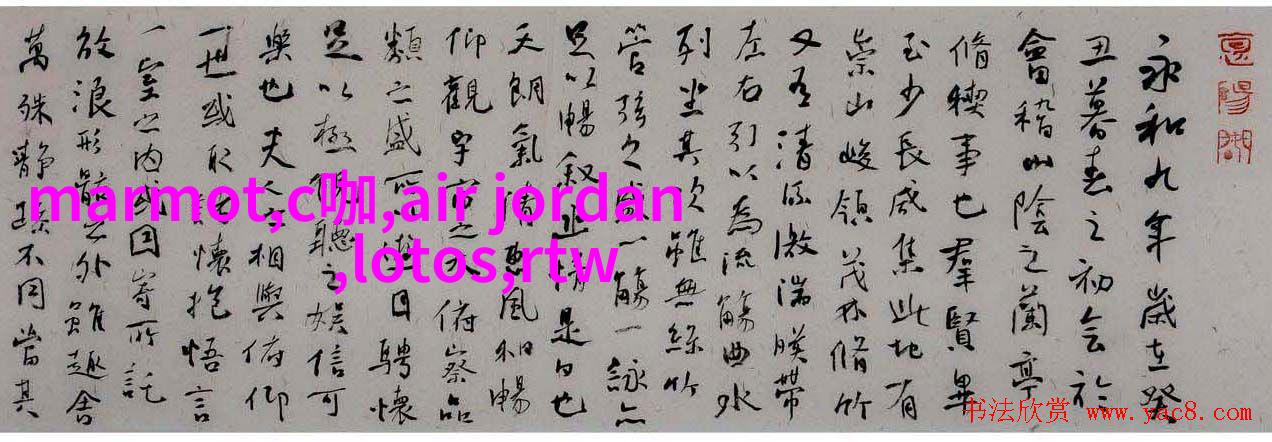 永和九年歲在癸
丑暮春之初会於
會稽山陰之蘭亭
脩稧事也羣賢畢
至少長咸集此地有
崇山峻領茂林脩竹
又有清流激湍暎帶
左右引以為流觴曲水
列坐其次雖無絲竹
管弦之盛一觴一詠亦
足以暢敘幽情是日也
天朗氣清惠風和暢
仰觀宇宙之大俯察品
類之盛所以遊目騁懷
足以極視聽之娛信可
樂也夫人之相與俯仰
一世或取諸懷抱悟言
一室之内或因寄所託
放浪形骸之外雖趣舍
萬殊靜躁不同當其
marmot,c咖,air jordan
,lotos,rtw
书法欣赏 www.yac8.com